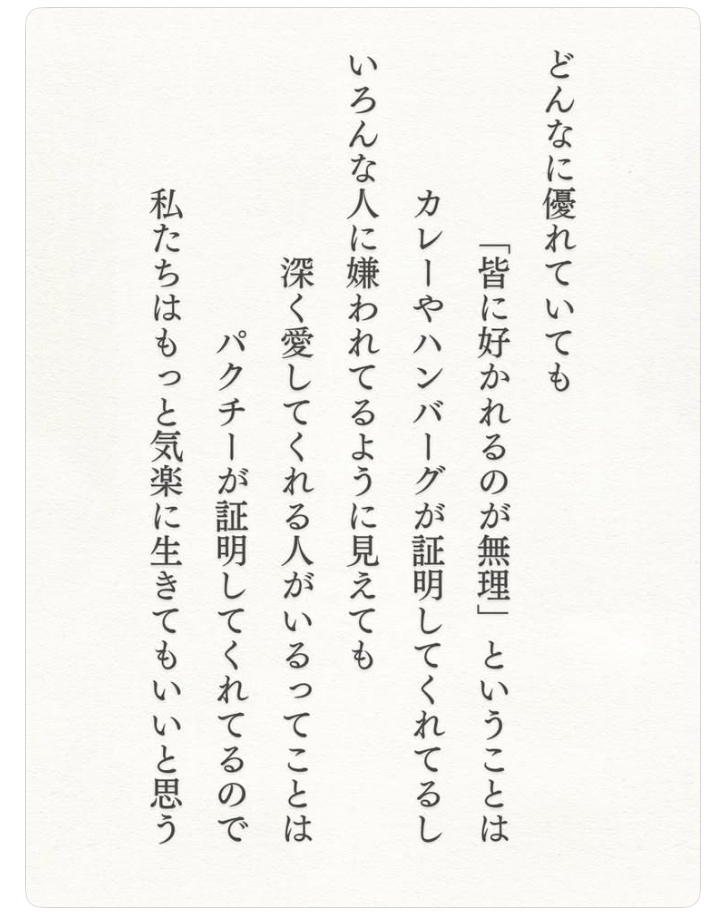 どんなに優れていても
「皆に好かれるのが無理」ということは
カレーやハンバーグが証明してくれてるし
いろんな人に嫌われてるように見えても
深く愛してくれる人がいるってことは
パクチーが証明してくれてるので
私たちはもっと気楽に生きてもいいと思う